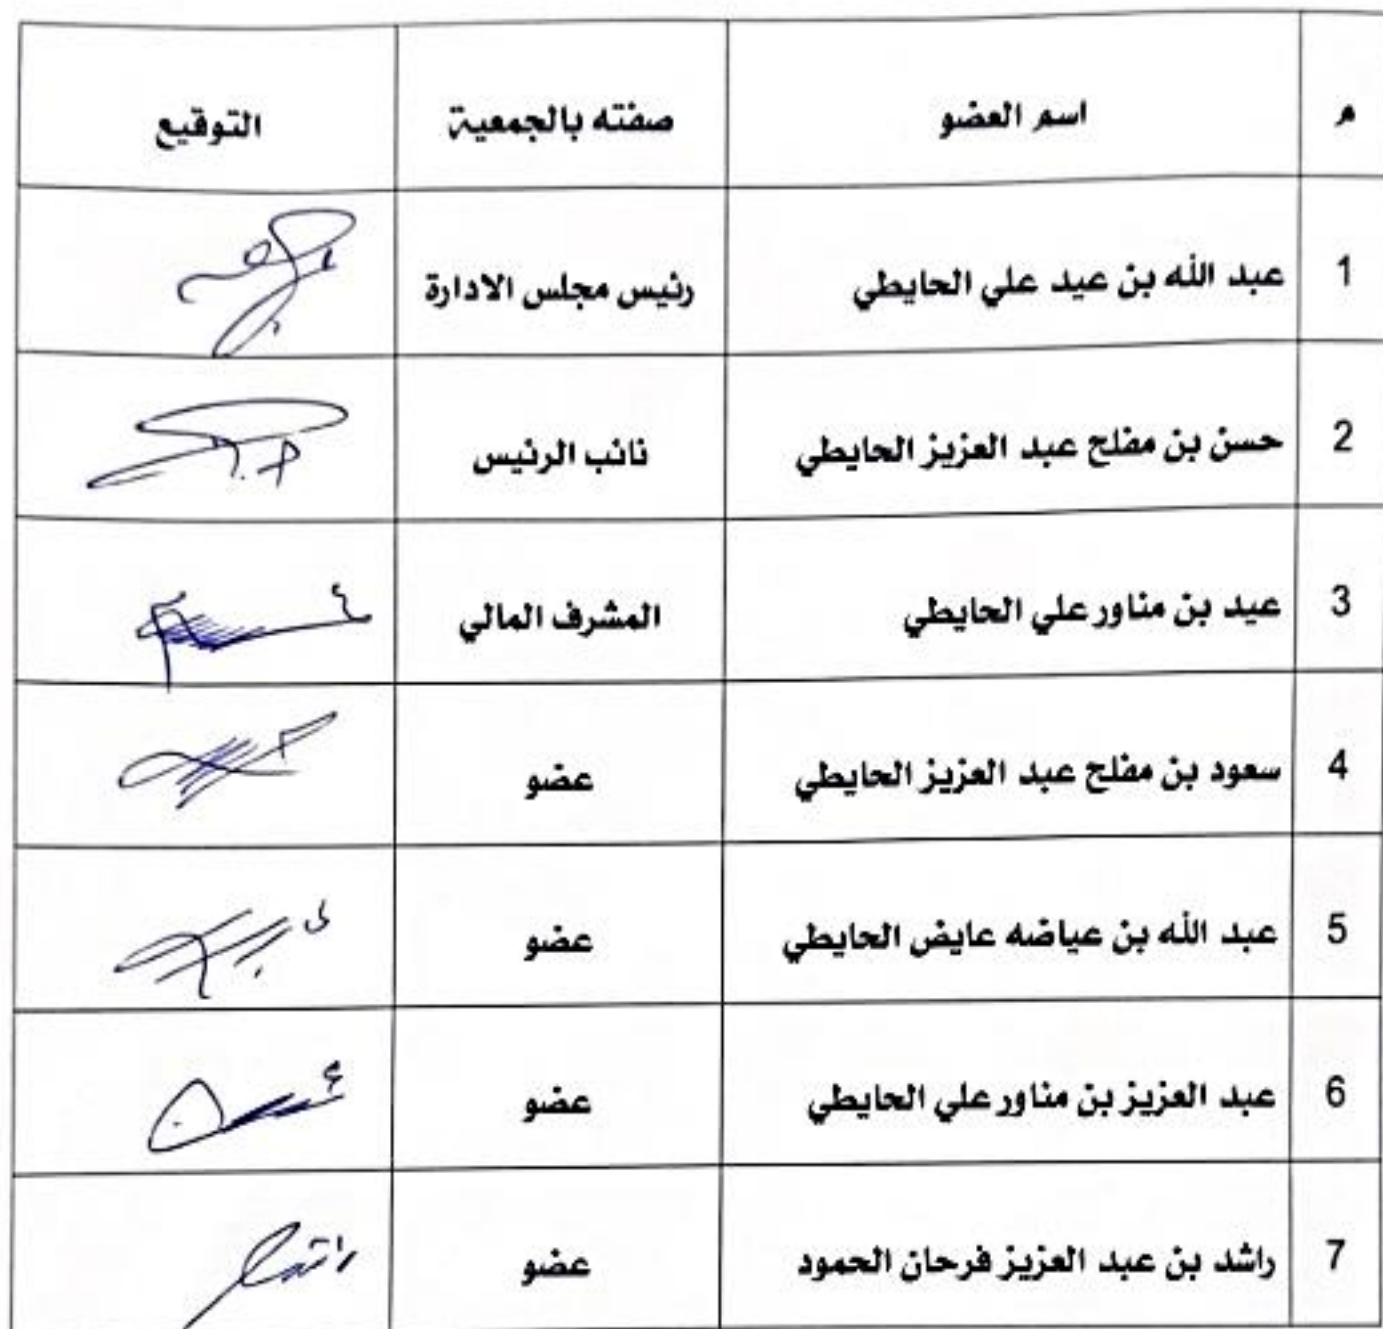 م اسم العضو صفته بالجمعية التوقيع
1 عبد الله بن عيد علي الحايطي رئيس مجلس الادارة
2 حسن بن مفلح عبد العزيز الحايطي نائب الرئيس
3 عيد بن مناور علي الحايطي المشرف المالي
4 سعود بن مفلح عبد العزيز الحايطي عضو
5 عبد الله بن عياضه عايض الحايطي عضو
6 عبد العزيز بن مناور علي الحايطي عضو
7 راشد بن عبد العزيز فرحان الحمود عضو راشد